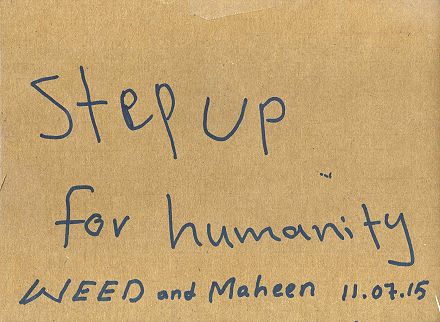 Step up
for humanity
WEED and Maheen 11.07.15